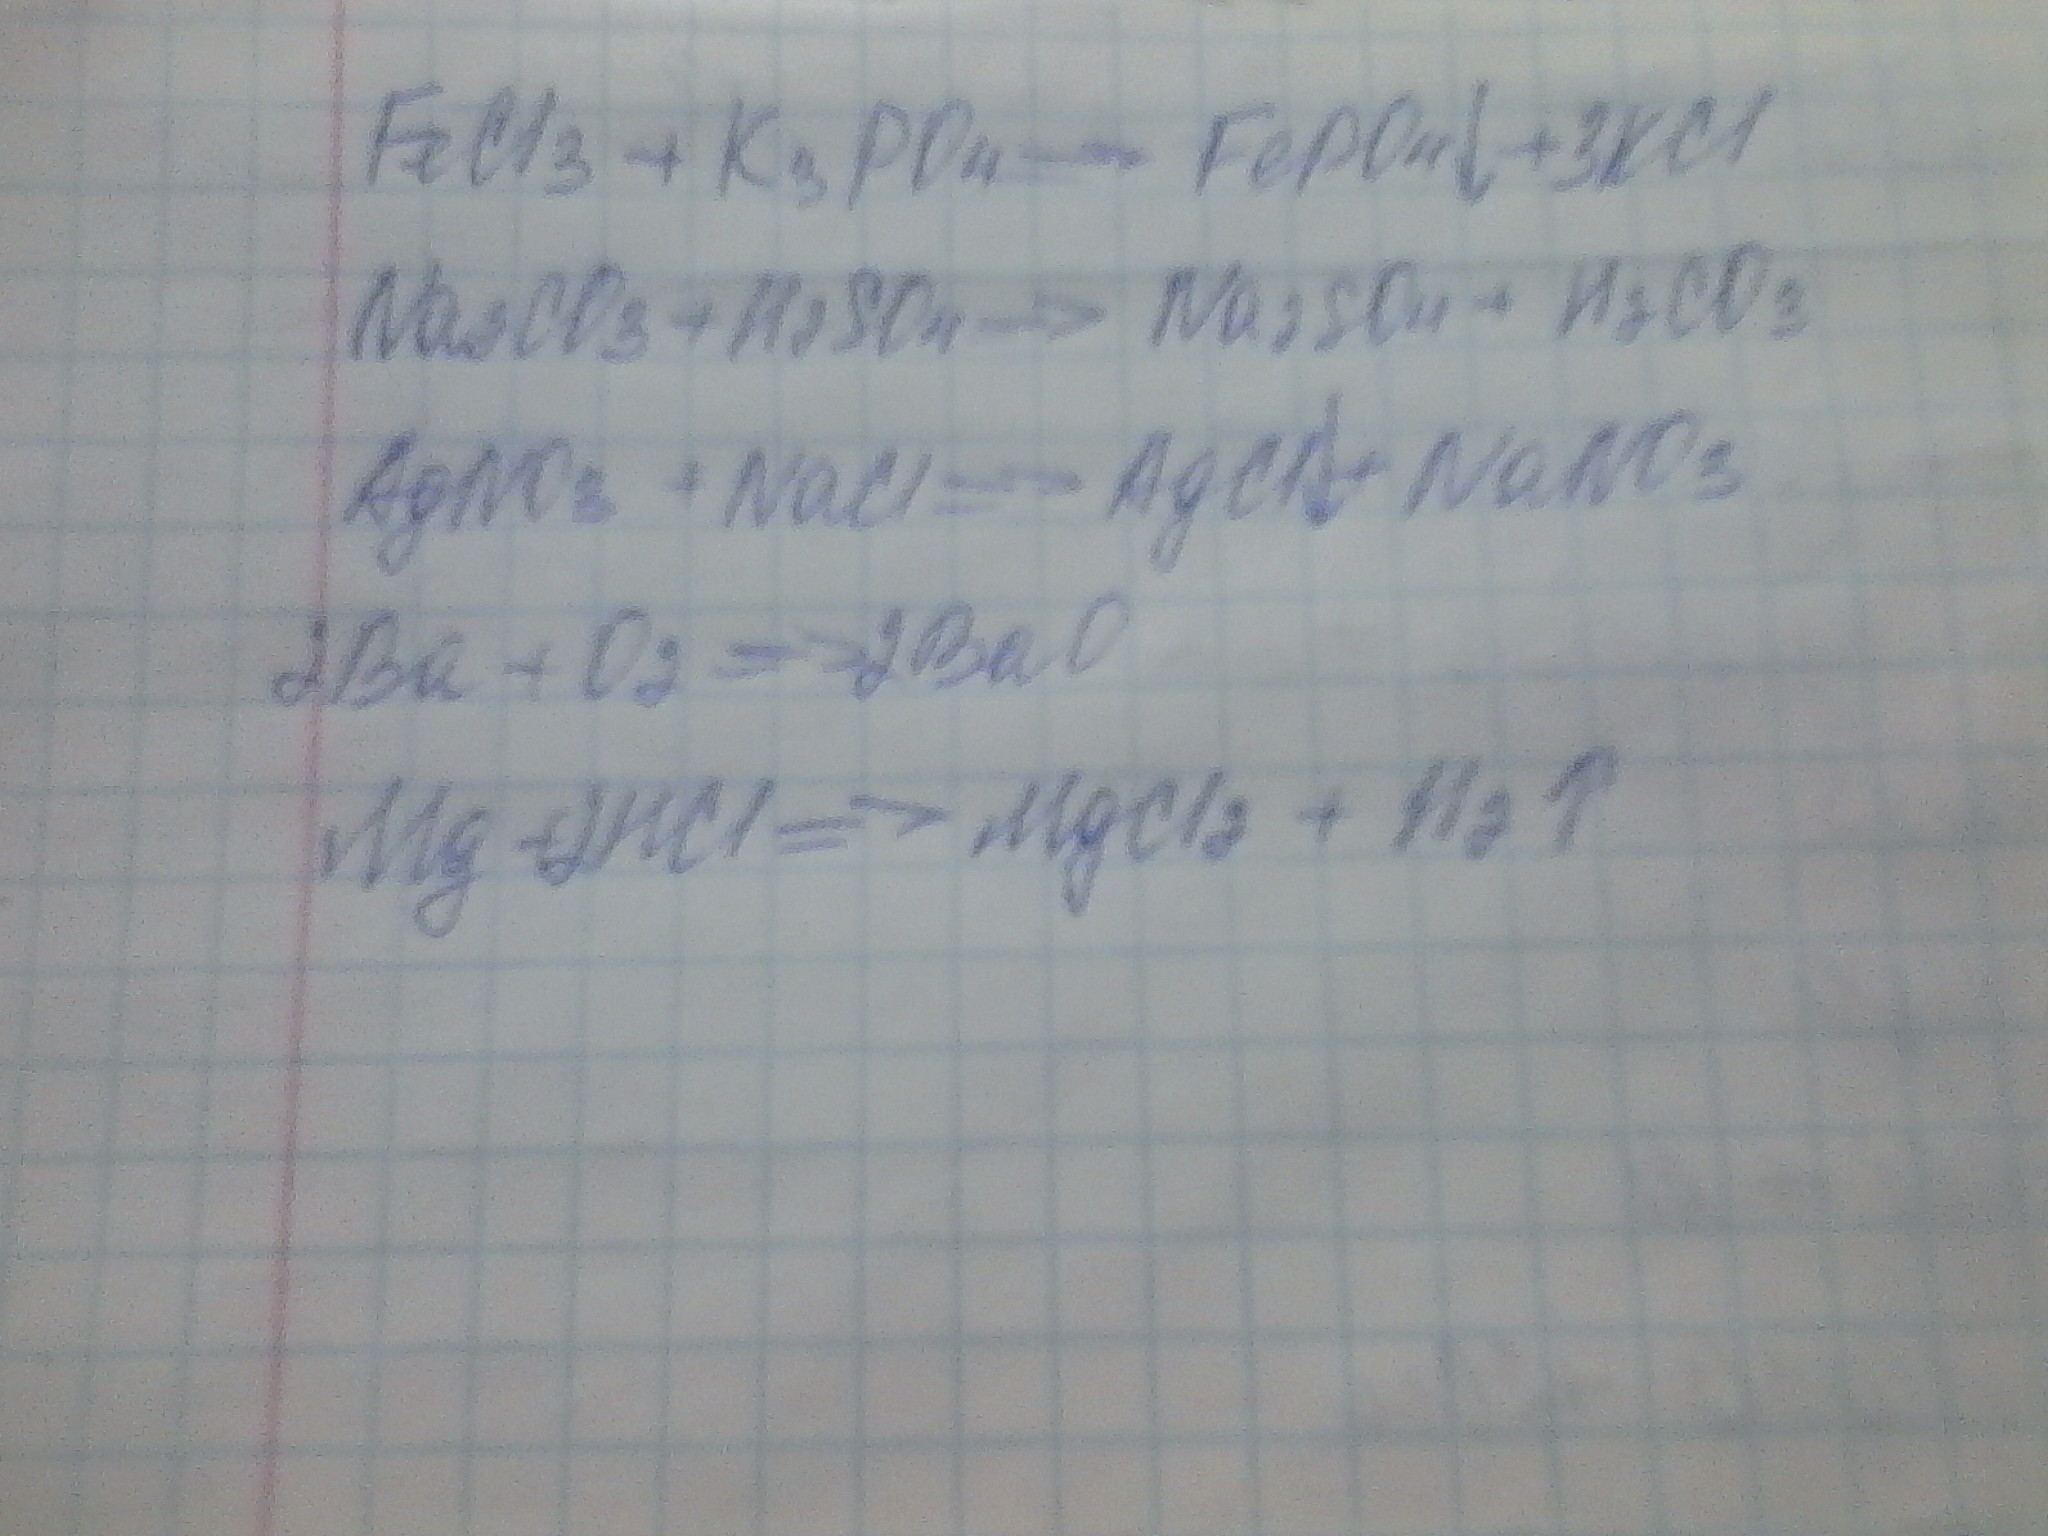 FeCl3 + K3PO4 → FePO4↓ + 3KCl
Na2CO3 + H2SO4 → Na2SO4 + H2CO3
AgNO3 + NaCl => AgCl↓ + NaNO3
2Ba + O2 => 2BaO
Mg + 2HCl => MgCl2 + H2↑